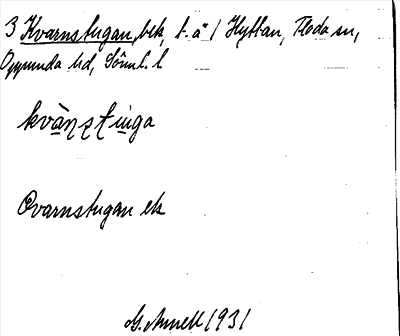 3 Kvarnstugan, bek, t. å 1 Hyttan, Floda sn,
Oppunda hd, Söml. l.
kvàṇṣtuga
Qvarnstugan ek
G. Arnell 1931